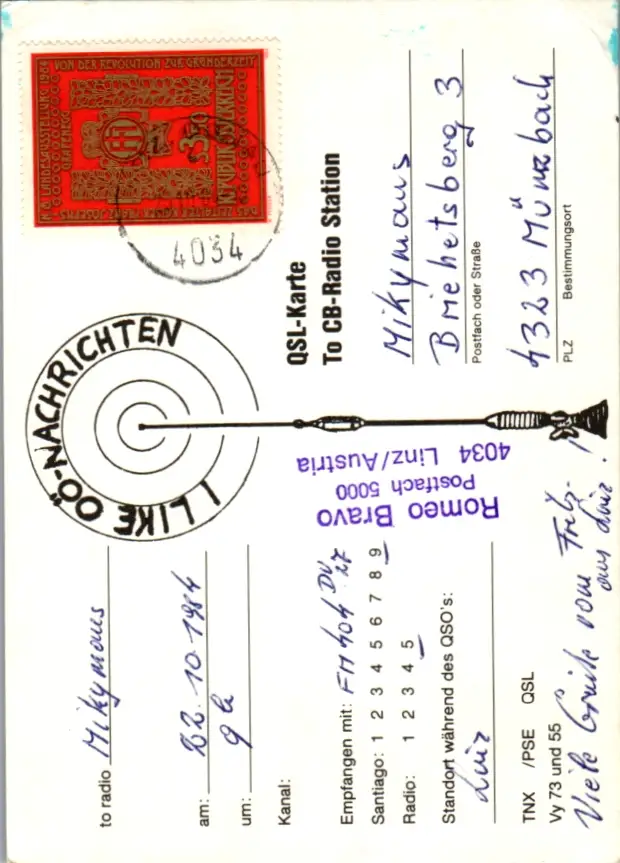 to radio Mikymaus
am: 22.10.1984
um: 9h
Kanal:
Empfangen mit: FM 404 DV 27
Santiago: 1 2 3 4 5 6 7 8 9
Radio: 1 2 3 4 5
Standort während des QSO's:
Linz
TNX /PSE QSL
Vy 73 und 55
Viele Grüße vom Fritz-
aus Linz!
I LIKE OÖ-NACHRICHTEN
Romeo Bravo
Postfach 5000
4034 Linz/Austria
N.Ö. LANDESAUSSTELLUNG 1984
GRAFENEGG
VON DER REVOLUTION ZUR GRÜNDERZEIT
DAS ZEITALTER KAISER FRANZ JOSEPHS
3.50
REPUBLIK ÖSTERREICH
4034
QSL-Karte
To CB-Radio Station
Mikymaus
Briehetsberg 3
Postfach oder Straße
4323 Münzbach
PLZ Bestimmungsort